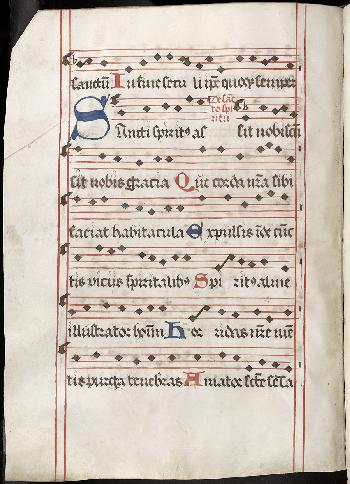 sanctū In fine secu li ip̄e quoq; semper
De sāc
to spi
ritu
Sancti spiritꝰ as sit nobis
sit nobis gracia Que corda nr̄a sibi
faciat habitacula Expulsis īde cūc
tis viciis spiritalibꝰ Spi ritꝰ alme
illustrator hoīm Hor ridas nr̄e mē
tis purga tenebras Amator sc̄e